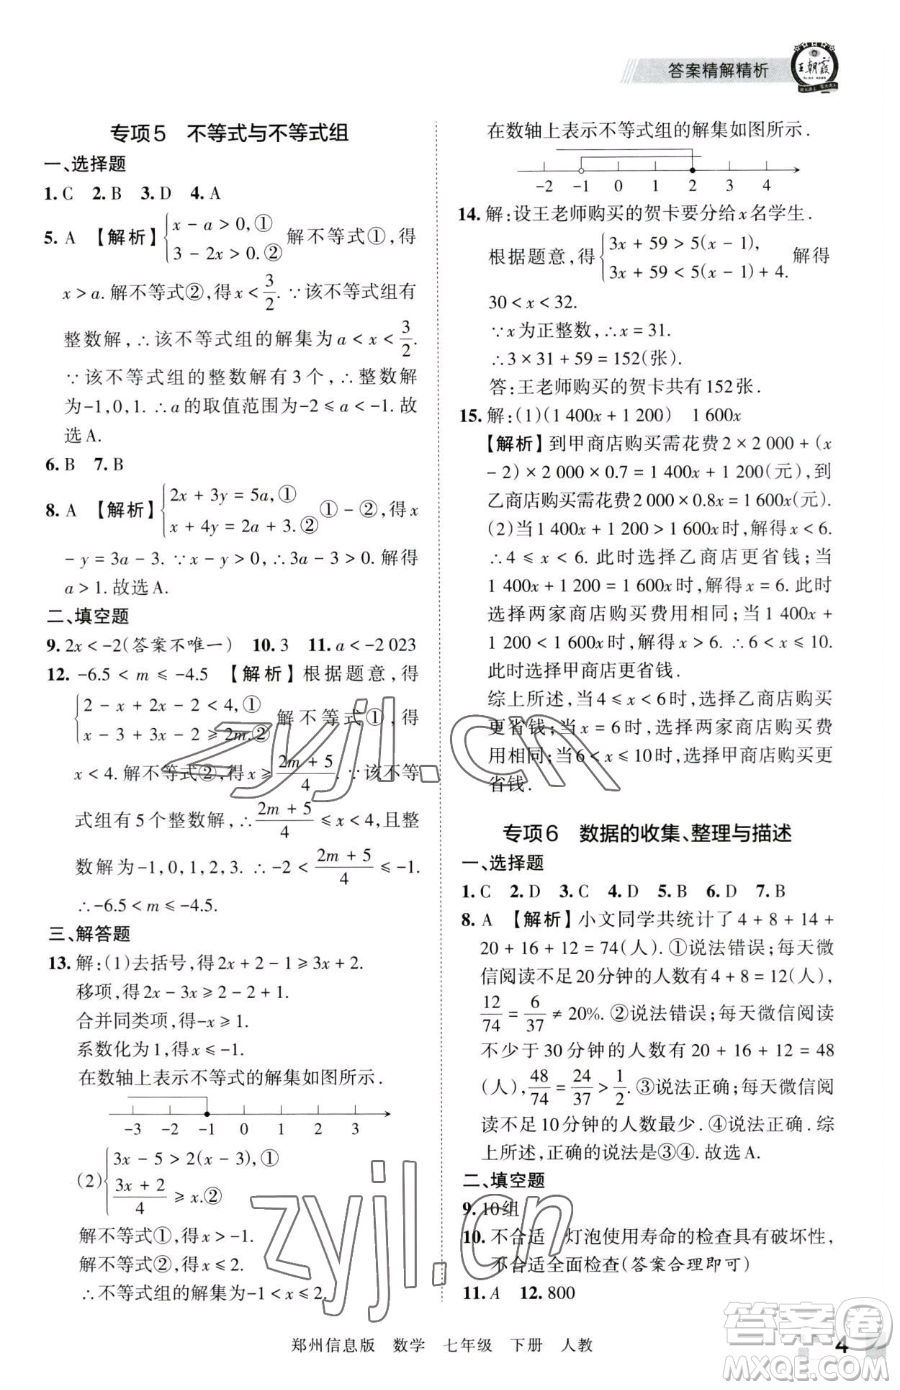 答案精解精析
王朝霞
专项5 不等式与不等式组
一、选择题
1. C 2. B 3. D 4. A
5. A 【解析】{x - a > 0,① 3 - 2x > 0.② 解不等式①,得
x > a. 解不等式②,得x < 3/2. ∵该不等式组有
整数解,∴该不等式组的解集为a < x < 3/2.
∵该不等式组的整数解有3个,∴整数解
为-1,0,1. ∴a的取值范围为-2 ⩽ a < -1. 故
选A.
6. B 7. B
8. A 【解析】{2x + 3y = 5a,① x + 4y = 2a + 3.② ① - ②,得x
- y = 3a - 3. ∵x - y > 0,∴3a - 3 > 0. 解得
a > 1. 故选A.
二、填空题
9. 2x < -2(答案不唯一) 10. 3 11. a < -2 023
12. -6.5 < m ⩽ -4.5 【解析】根据题意,得
{2 - x + 2x - 2 < 4,① x - 3 + 3x - 2 ⩾ 2m.② 解不等式①,得
x < 4. 解不等式②,得x ⩾ (2m + 5)/4. ∵该不等
式组有5个整数解,∴(2m + 5)/4 ⩽ x < 4,且整
数解为-1,0,1,2,3. ∴-2 < (2m + 5)/4 ⩽ -1.
∴-6.5 < m ⩽ -4.5.
三、解答题
13. 解:(1)去括号,得2x + 2 ⩾ 3x + 3.
移项,得2x - 3x ⩾ 3 - 2.
合并同类项,得-x ⩾ 1.
系数化为1,得x ⩽ -1.
在数轴上表示不等式的解集如图所示.
-3 -2 -1 0 1 2 3
(2){3x - 5 > 2(x - 3),① (3x + 2)/4 ⩾ x.②
解不等式①,得x > -1.
解不等式②,得x ⩽ 2.
∴不等式组的解集为-1 < x ⩽ 2.
在数轴上表示不等式组的解集如图所示.
-2 -1 0 1 2 3 4
14. 解:设王老师购买的贺卡要分给x名学生.
根据题意,得{3x + 59 > 5(x - 1), 3x + 59 < 5(x - 1) + 4. 解得
30 < x < 32.
∵x为正整数,∴x = 31.
∴3 × 31 + 59 = 152(张).
答:王老师购买的贺卡共有152张.
15. 解:(1)(1 400x + 1 200) 1 600x
【解析】到甲商店购买需花费2 × 2 000 + (x
- 2) × 2 000 × 0.7 = 1 400x + 1 200(元),到
乙商店购买需花费2 000 × 0.8x = 1 600x(元).
(2)当1 400x + 1 200 > 1 600x时,解得x < 6.
∴4 ⩽ x < 6. 此时选择乙商店更省钱;当
1 400x + 1 200 = 1 600x时,解得x = 6. 此时
选择两家商店购买费用相同;当1 400x +
1 200 < 1 600x时,解得x > 6. ∴6 < x ⩽ 10.
此时选择甲商店更省钱.
综上所述,当4 ⩽ x < 6时,选择乙商店购买
更省钱;当x = 6时,选择两家商店购买费
用相同;当6 < x ⩽ 10时,选择甲商店购买更
省钱.
专项6 数据的收集、整理与描述
一、选择题
1. C 2. D 3. C 4. D 5. B 6. D 7. B
8. A 【解析】小文同学共统计了4 + 8 + 14 +
20 + 16 + 12 = 74(人). ①说法错误;每天微
信阅读不足20分钟的人数有4 + 8 = 12(人),
12/74 = 6/37 ≠ 20%. ②说法错误;每天微信阅读
不少于30分钟的人数有20 + 16 + 12 = 48
(人),48/74 = 24/37 > 1/2. ③说法正确;每天微信阅
读不足10分钟的人数最少. ④说法正确.
综上所述,正确的说法是③④. 故选A.
二、填空题
9. 10组
10. 不合适 灯泡使用寿命的检查具有破坏性,
不适合全面检查(答案合理即可)
11. A 12. 800
郑州信息版 数学 七年级 下册 人教
4
zyjl.cn
zyjl.cn
答案圈
MXQE.COM